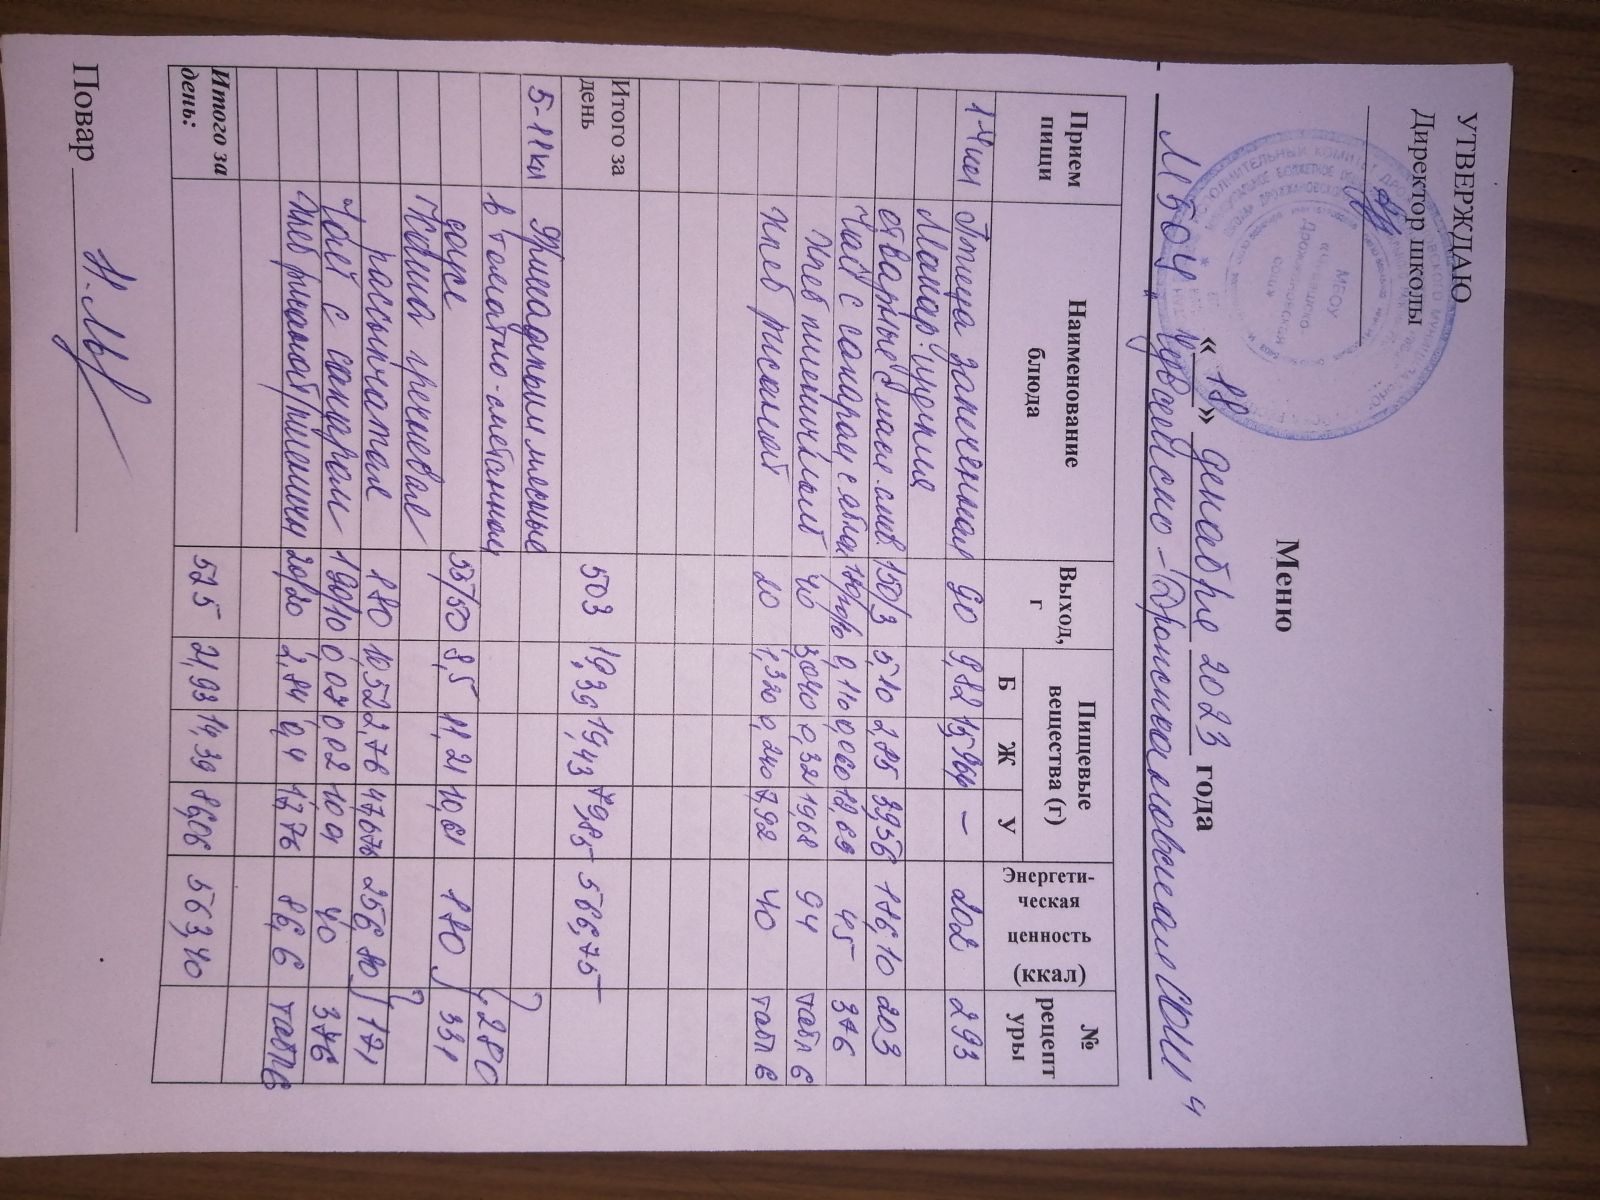 УТВЕРЖДАЮ
Директор школы
МБОУ
СОШ»
Меню
« 18 » декабре 2023 года
МБОУ „ СОШ "
Прием пищи Наименование блюда Выход, г Пищевые вещества (г) Энергети-ческая ценность (ккал) № рецепт уры
Б Ж У
1-4 кл Птица запеченная 90 9,82 – 202 293
Макар. изделия
отварные с масл. слив. 150/3 510 2,85 39,56 186,10 203
Чай с сахаром 0,060 12,69 45 376
Хлеб пшеничный 40 3,040 0,32 19,68 94 табл 6
Хлеб ржаной 20 1,320 0,240 7,92 40 табл 6
Итого за день 503 19,39 19,43 79,85 566,75
5-11 кл Фрикадельки мясные
в томатно-сметанном 280
соусе 55/50 8,5 11,21 10,61 180 331
Каша гречневая
рассыпчатая 180 10,52 2,76 47,676 256,80 171
Чай с сахаром 190/10 0,070 0,02 10,01 40 376
Хлеб ржаной/пшеничн 20/20 2,84 0,4 17,76 86,6 табл 6
Итого за день: 525 21,93 14,39 86,06 563,40
Повар